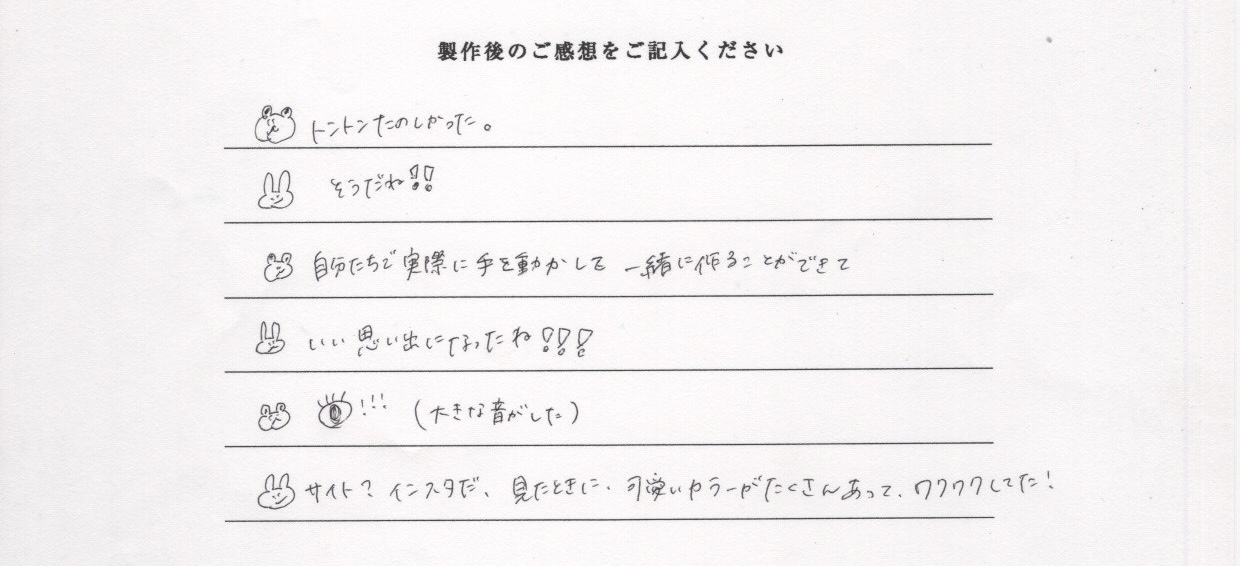 製作後のご感想をご記入ください
トントンたのしかった。
そうだね!!
自分たちで実際に手を動かして 一緒に作ることができて
いい思い出になったね!!!
!!! (大きな音がした)
サイト? インスタだ、見たときに、可愛いカラーがたくさんあって、ワクワクしてた!